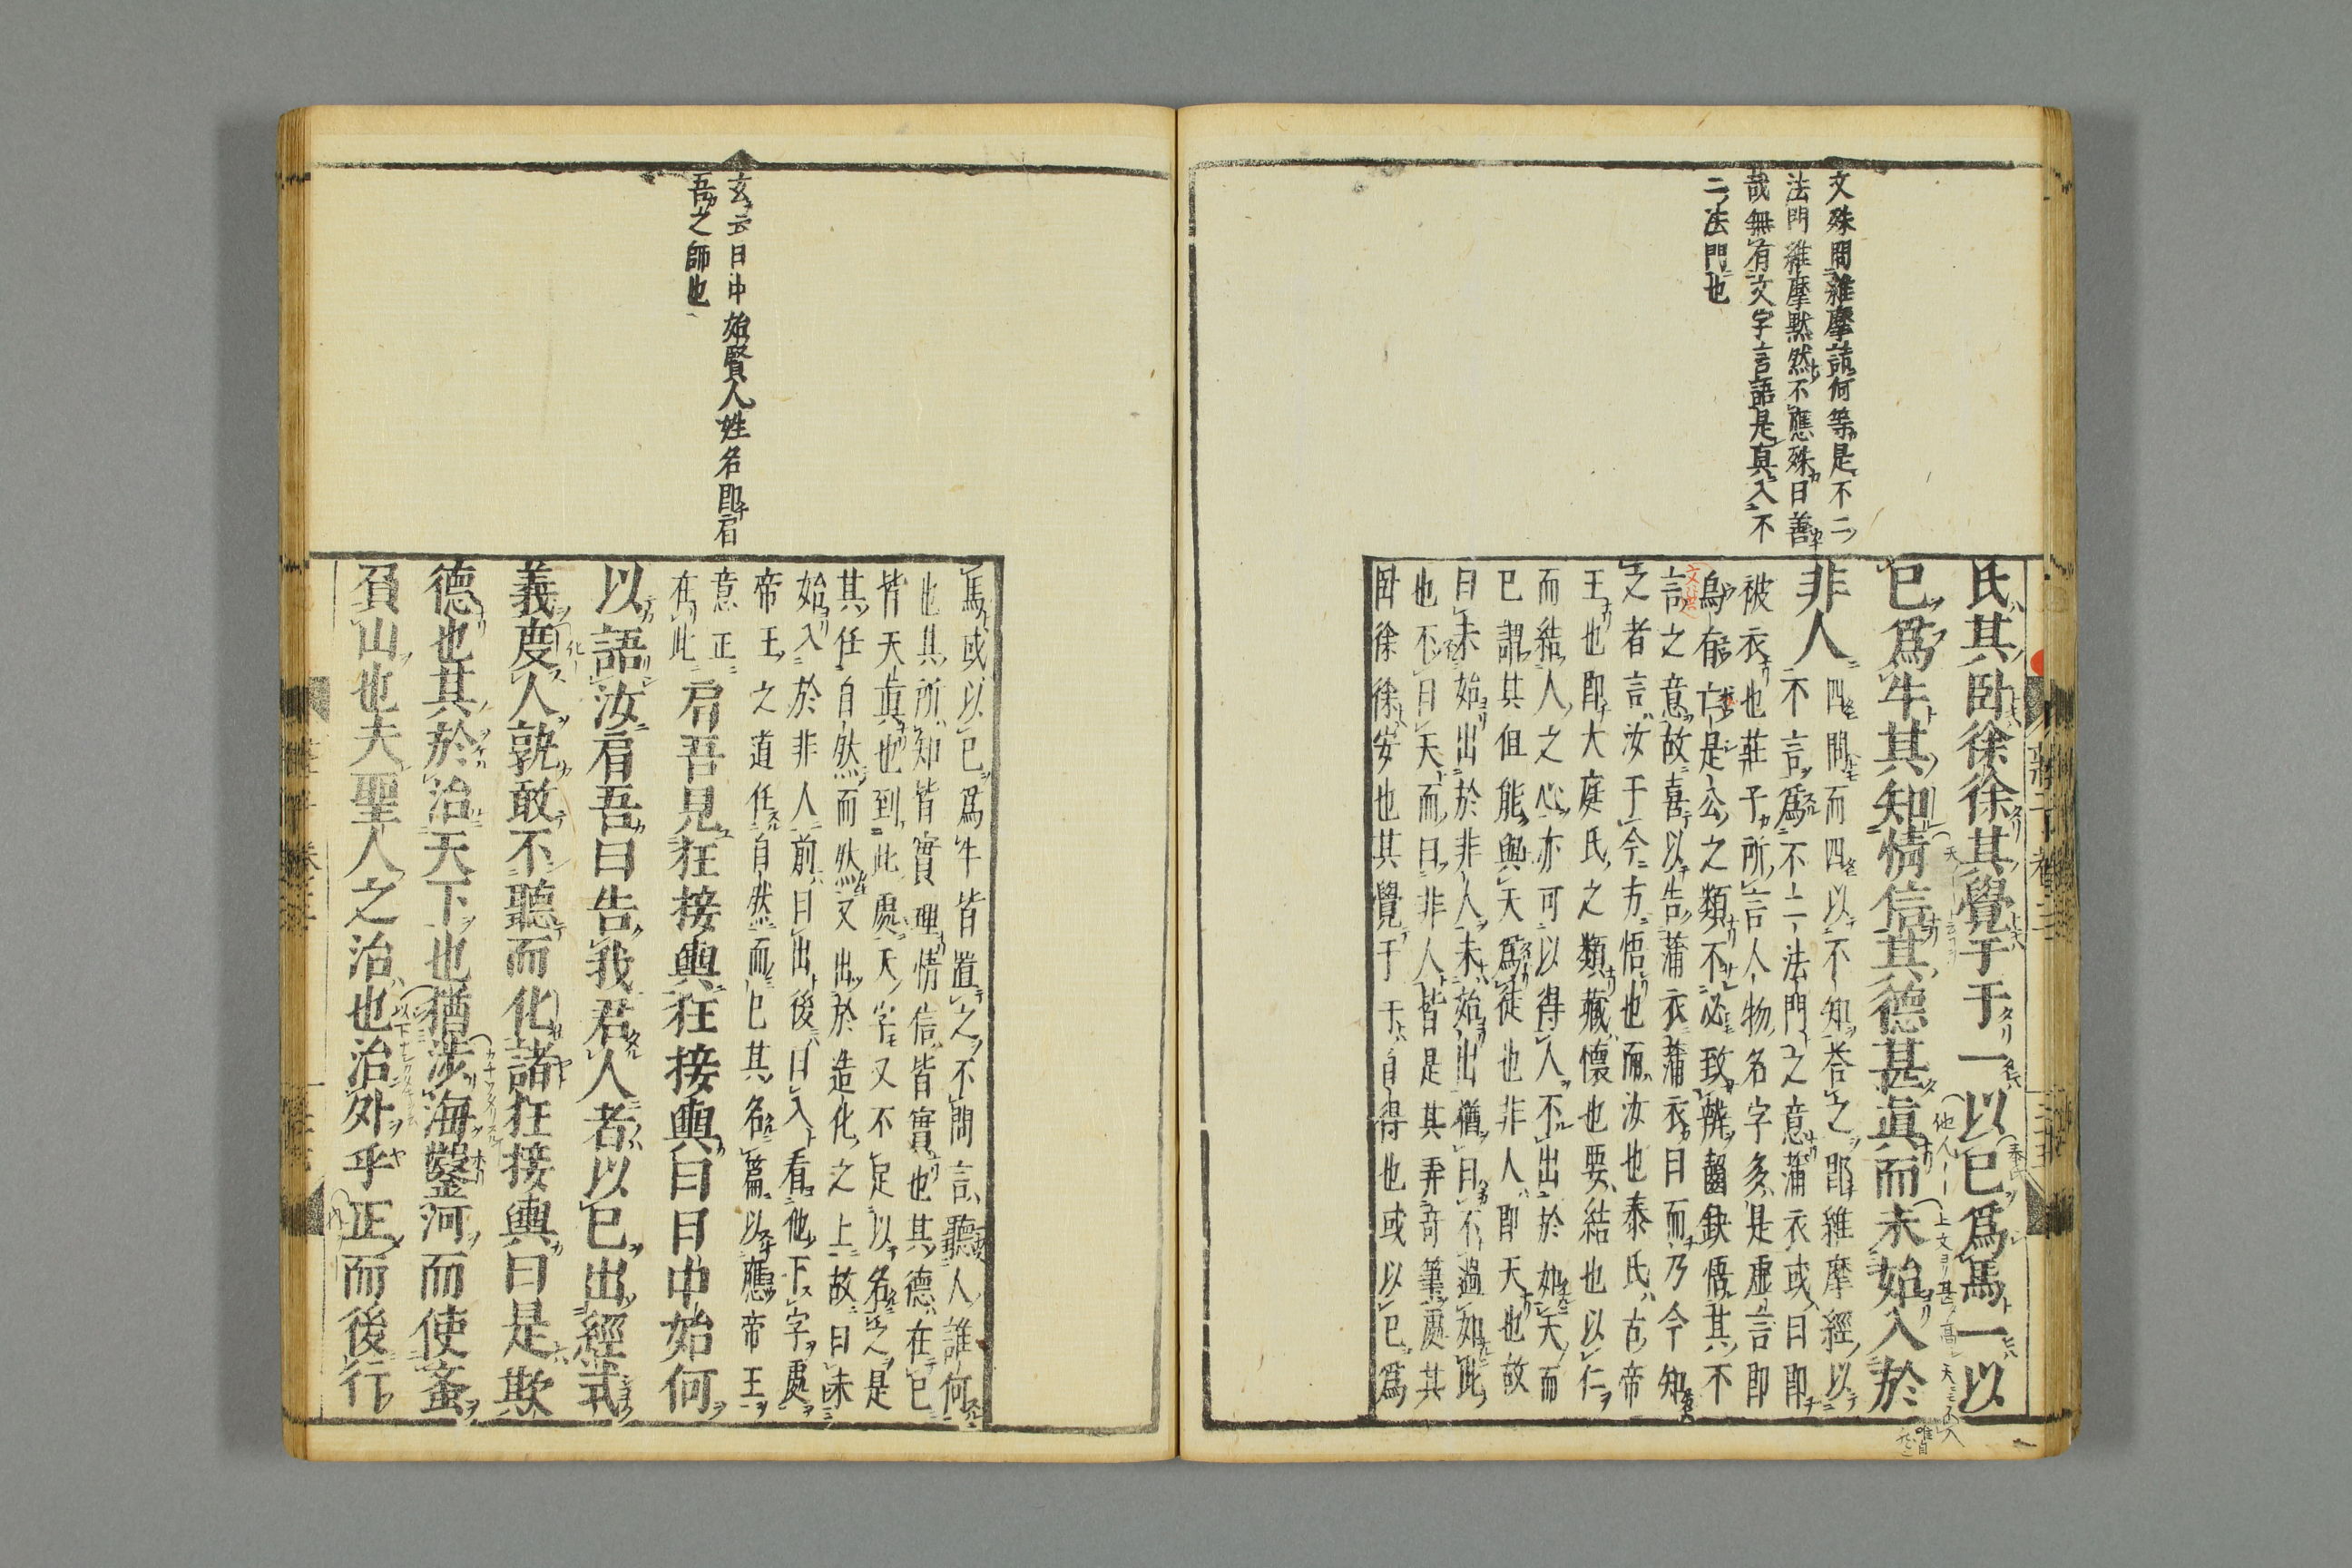 文殊問維摩詰何等是不二
法門維摩默然不應殊曰善
哉無有文字言語是真入不
二法門也
氏其臥徐徐其覺于于一以己爲馬一以
己爲牛其知情信其德甚眞而未始入於
非人
四問而四以不知答之即維摩經以
不言爲不二法門之意蒲衣或曰即
被衣也莊子所言人物名字多是虛言即
烏有亡是公之類不必致辨齧缺悟其不
言之意故喜以告蒲衣蒲衣曰而乃今知
之者言汝于今方悟也而汝也泰氏古帝
王也即大庭氏之類藏懷也要結也以仁
而結人之心亦可以得人不出於如天而
已謂其但能與天爲徒也非人即天也故
曰未始出於非人未始出猶曰不過如此
也不曰天而曰非人皆是其弄奇筆處其
臥徐徐安也其覺于于自得也或以己爲
馬或以己爲牛皆置之不問言聽人誰何
也其所知皆實理情信皆實也其德在己
皆天眞也到此處天字又不足以名之是
其任自然而然又出於造化之上故曰未
始入於非人前曰出後曰入看他下字處
帝王之道任自然而已其名篇以應帝王
意正
在此
肩吾見狂接輿狂接輿曰日中始何
以語汝肩吾曰告我君人者以己出經式
義度人孰敢不聽而化諸狂接輿曰是欺
德也其於治天下也猶涉海鑿河而使蚉
負山也夫聖人之治也治外乎正而後行
玄云日中始賢人姓名即肩
吾之師也